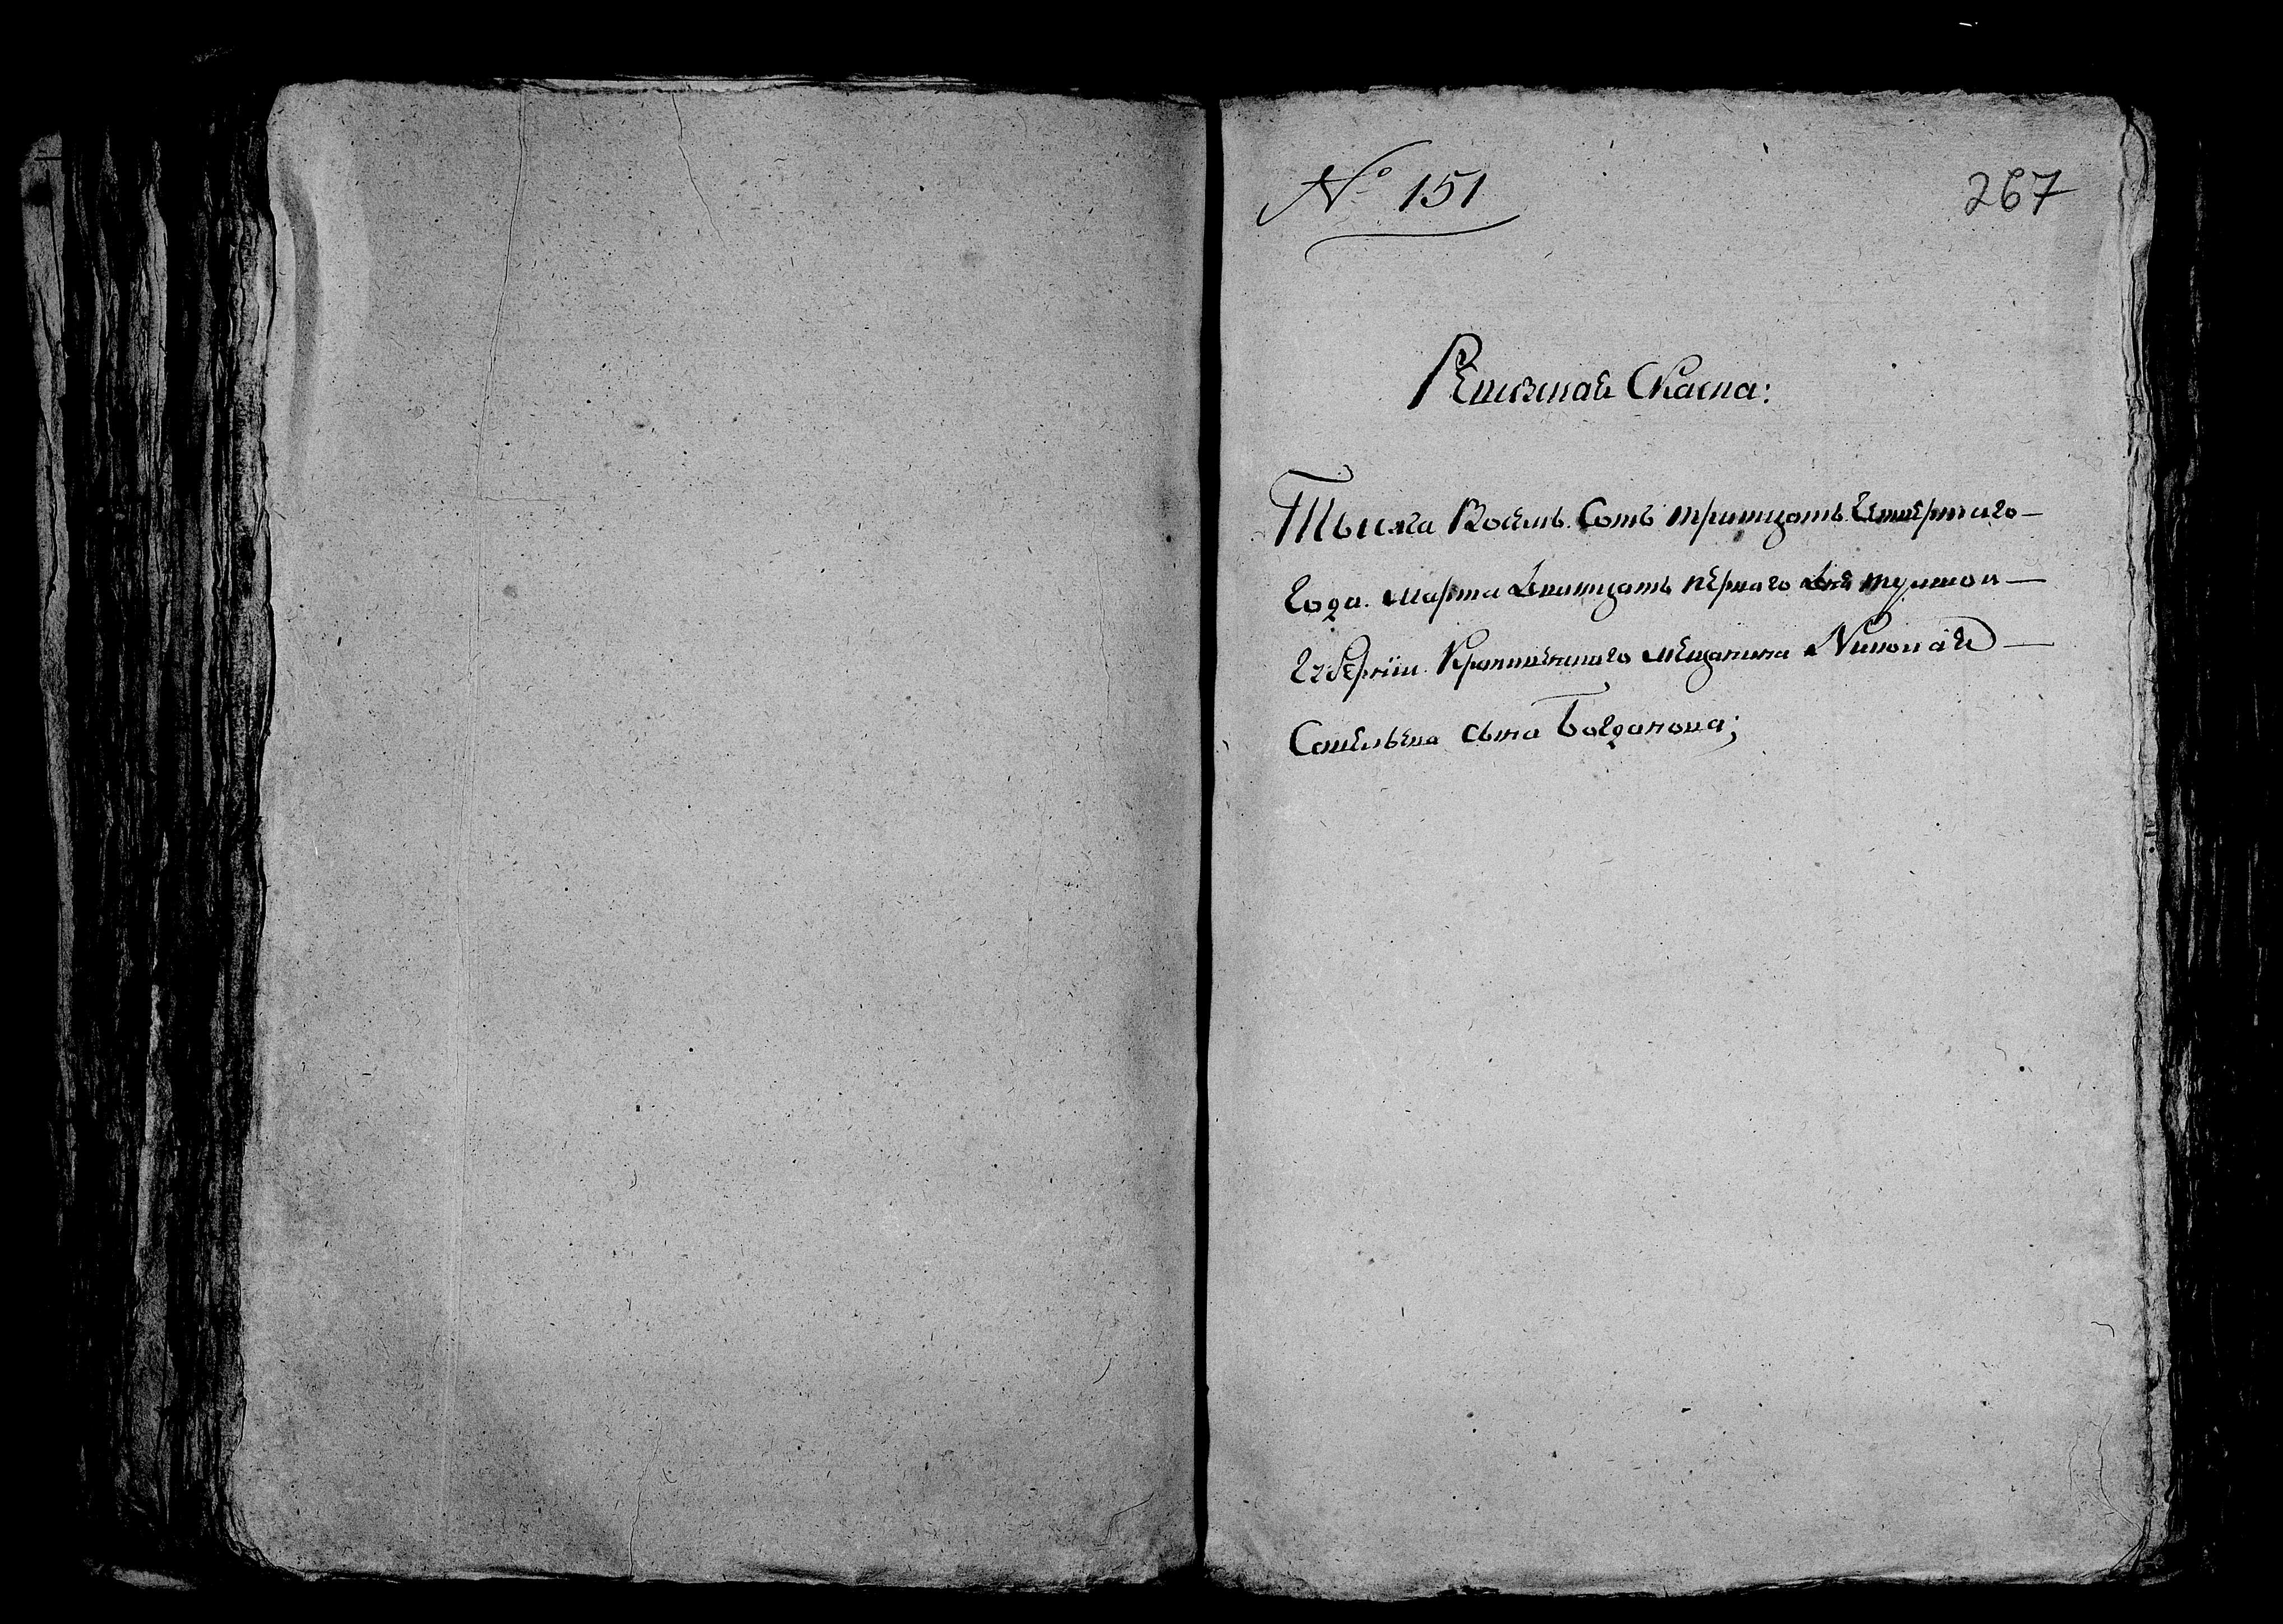 № 151
267
Ревизная Скаска:
Тысяча Восемь Сотъ тритцать Четвертаго
Года. Марта Дватцать перваго Дня тульской
Губернїи Крапивенскаго мещанина Николая
Савельева сына Богданова;